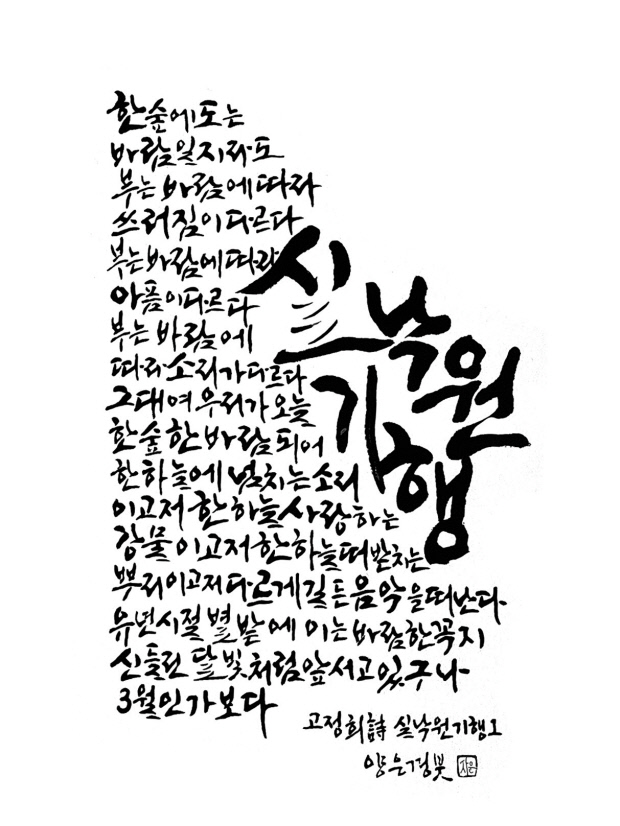 한숲에도는
바람일지라도
부는 바람에 따라
쓰러짐이 다르다
부는 바람에 따라
아픔이 다르다
부는 바람에
따라 소리가 다르다
그대여 우리가 오늘
한숲 한 바람 되어
한 하늘에 넘치는 소리
이고저 한 하늘 사랑하는
강물이고저 한 하늘 떠받치는
뿌리이고저 다르게 길든 음악을 떠난다
유년시절 별밭에 이는 바람 한꼭지
신들린 달빛처럼 앞서고 있구나
3월인가보다
실낙원
기행
고정희 詩 실낙원기행 1